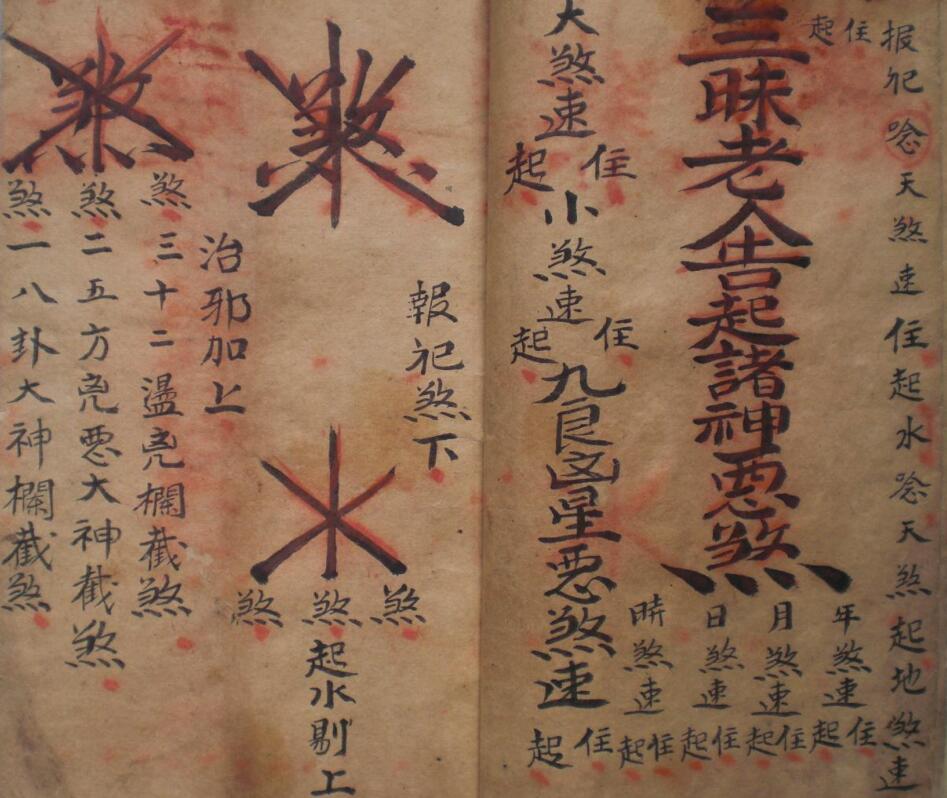 报祀唸天煞速住起水唸天煞起地煞速
住起
三昧老人告起諸神悪煞
年煞速住起
月煞速住起
日煞速住起
時煞速住起
大煞速住起小煞速住起九良凶星悪煞速住起
報祀煞下
煞
煞煞煞
起水剔上
治邪加上
煞
煞三十二盪兇欄截煞
煞二五方兇悪大神截煞
煞一八卦大神欄截煞